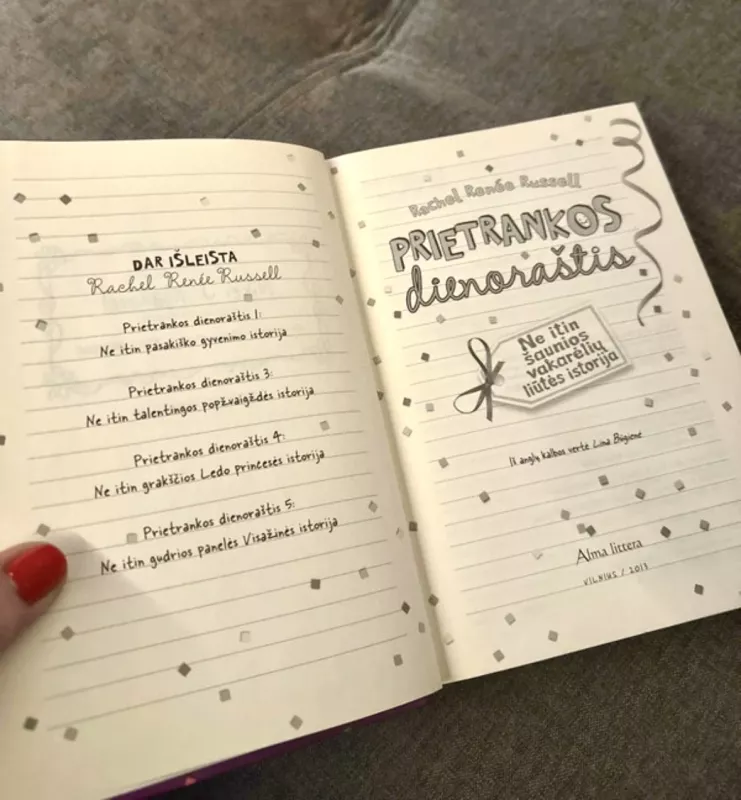 DAR IŠLEISTA
Rachel Renée Russell
Prietrankos dienoraštis 1:
Ne itin pasakiško gyvenimo istorija
Prietrankos dienoraštis 3:
Ne itin talentingos popžvaigždės istorija
Prietrankos dienoraštis 4:
Ne itin grakščios Ledo princesės istorija
Prietrankos dienoraštis 5:
Ne itin gudrios panelės Visažinės istorija
Rachel Renée Russell
PRIETRANKOS
dienoraštis
Ne itin
šaunios
vakarėlių
liūtės istorija
Iš anglų kalbos vertė Lina Būgienė
Alma littera
VILNIUS / 2013